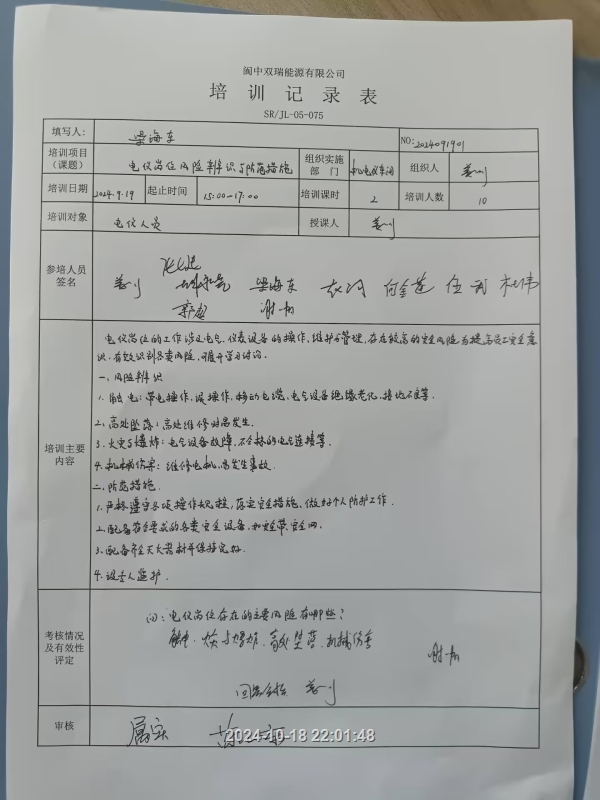 阆中双瑞能源有限公司
培训记录表
SR/JL-05-075
填写人: 梁海东 NO: 2024091901
培训项目（课题） 电仪岗位风险辨识与防范措施 组织实施部门 机电仪车间 组织人 姜
培训日期 2024.9.19 起止时间 15:00-17:00 培训课时 2 培训人数 10
培训对象 电仪人员 授课人 姜
参培人员签名
姜 梁海东 伍 杜伟
谢
培训主要内容
电仪岗位的工作涉及电气、仪表设备的操作、维护与管理，存在较高的安全风险，为提高员工安全意
识，有效识别各类风险，开展学习讨论。
一、风险辨识
1. 触电：带电操作、误操作、移动电缆、电气设备绝缘老化、接地不良等。
2. 高处坠落：高处维修时易发生。
3. 火灾与爆炸：电气设备故障，不合格的电气连接等。
4. 机械伤害：维修电机，易发生事故。
二、防范措施
1. 严格遵守各项操作规程，落实安全措施，做好个人防护工作。
2. 配备符合要求的各类安全设备，如安全带、安全网。
3. 配备齐全灭火器材并保持完好。
4. 设专人监护。
考核情况及有效性评定
问：电仪岗位存在的主要风险有哪些？
触电、火灾与爆炸、高处坠落、机械伤害
谢
回答合格 姜
审核 属实
2024-10-18 22:01:48